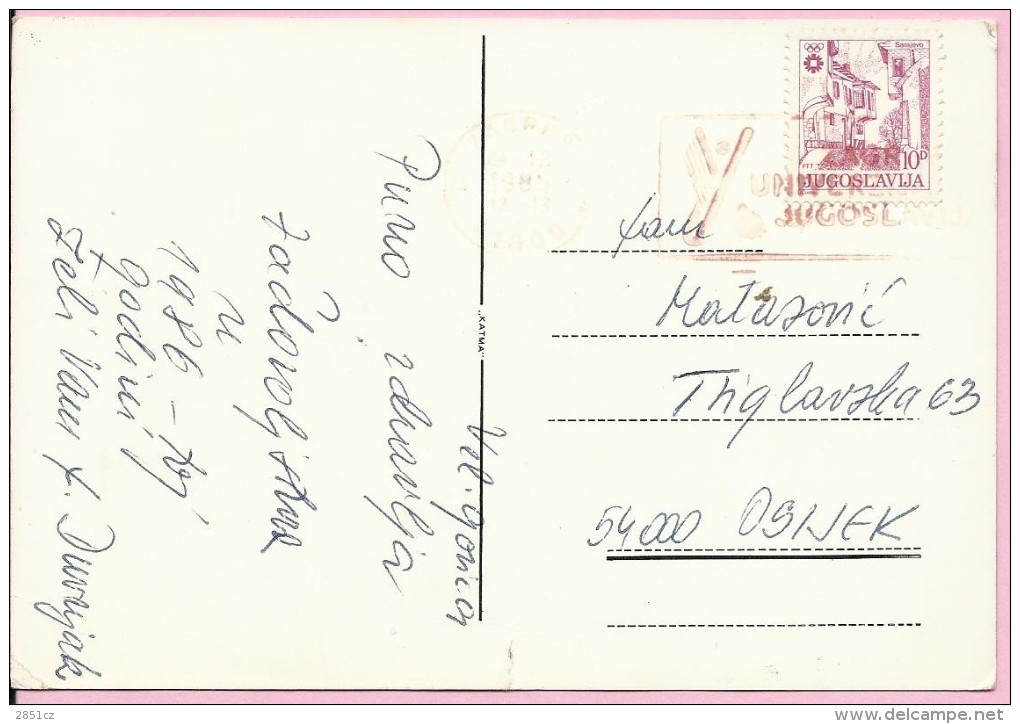 Vel. Gorica
Puno zdravlja
zadovoljstva
u
1986-toj
godini
Želi Vam f. Duvnjak
"KATMA"
fam
Matasović
Triglavska 63
54000 OSIJEK
Sarajevo
10D
PTT
JUGOSLAVIJA
1985
JUGOSL
2851cz
www.delcampe.net